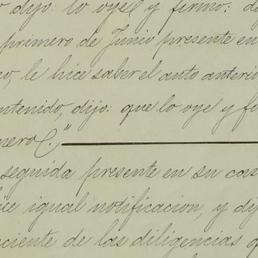 o dijo: lo oye y firmo: de
primero de Junio presente en
no, le hice saber el auto anterio
ntenido, dijo: que lo oye y fi
nero C."
seguida presente en su cas
ice igual notificacion, y dij
ciente de las diligencias q